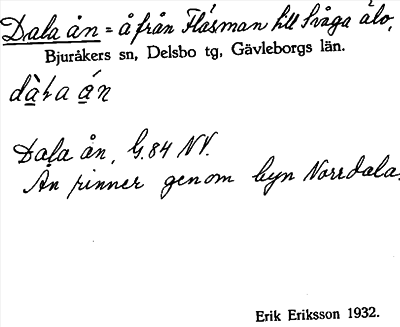 Dala ån = å från Flåsman till Svåga älv,
Bjuråkers sn, Delsbo tg, Gävleborgs län.
Dala ån, G.84 NV.
Ån rinner genom byn Norrdala.
Erik Eriksson 1932.